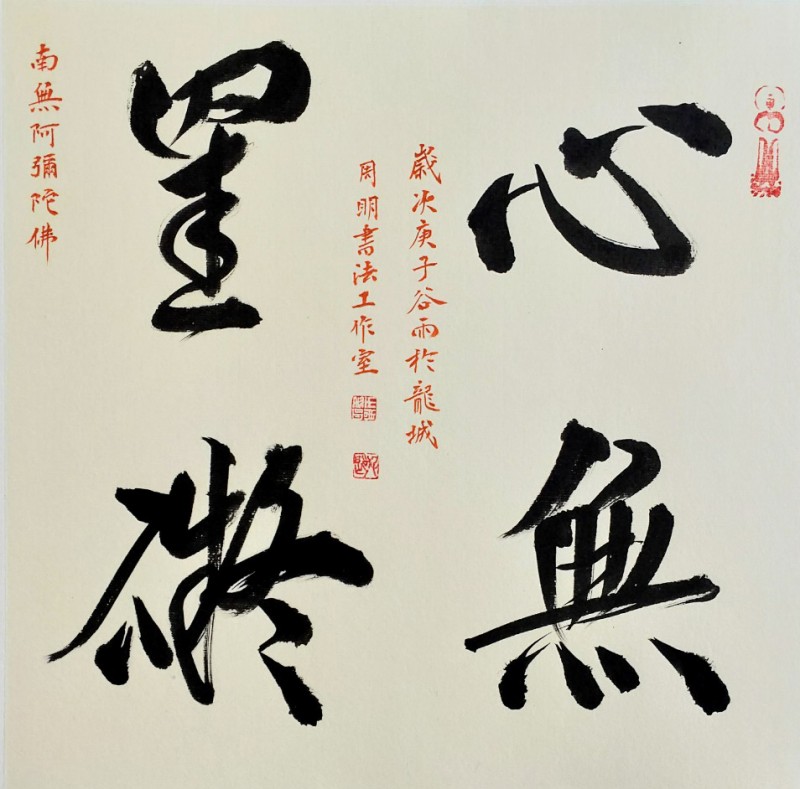 心無
罣礙
歲次庚子谷雨於龍城
周明書法工作室
南無阿彌陀佛